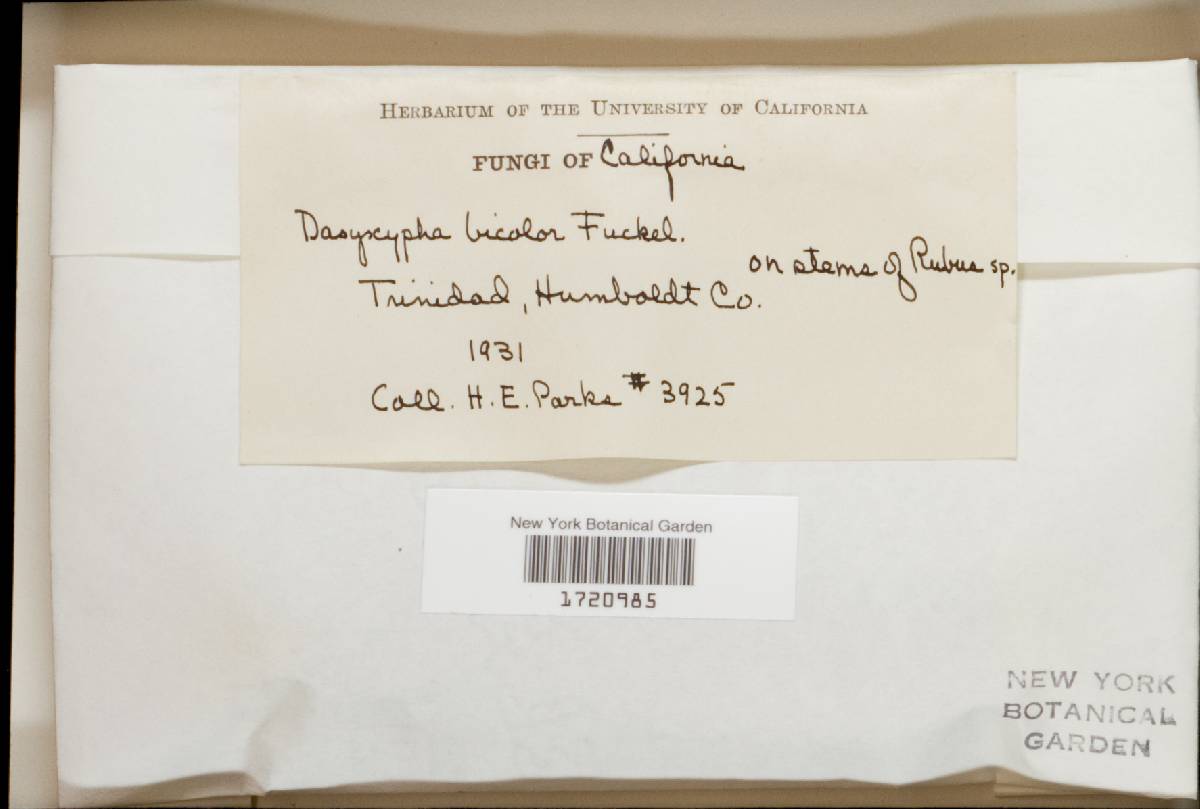 HERBARIUM OF THE UNIVERSITY OF CALIFORNIA
FUNGI OF California
Dasyscypha bicolor Fuckel.
on stems of Rubus sp.
Trinidad, Humboldt Co.
1931
Coll. H. E. Parks # 3925
New York Botanical Garden
1720985
NEW YORK
BOTANICAL
GARDEN